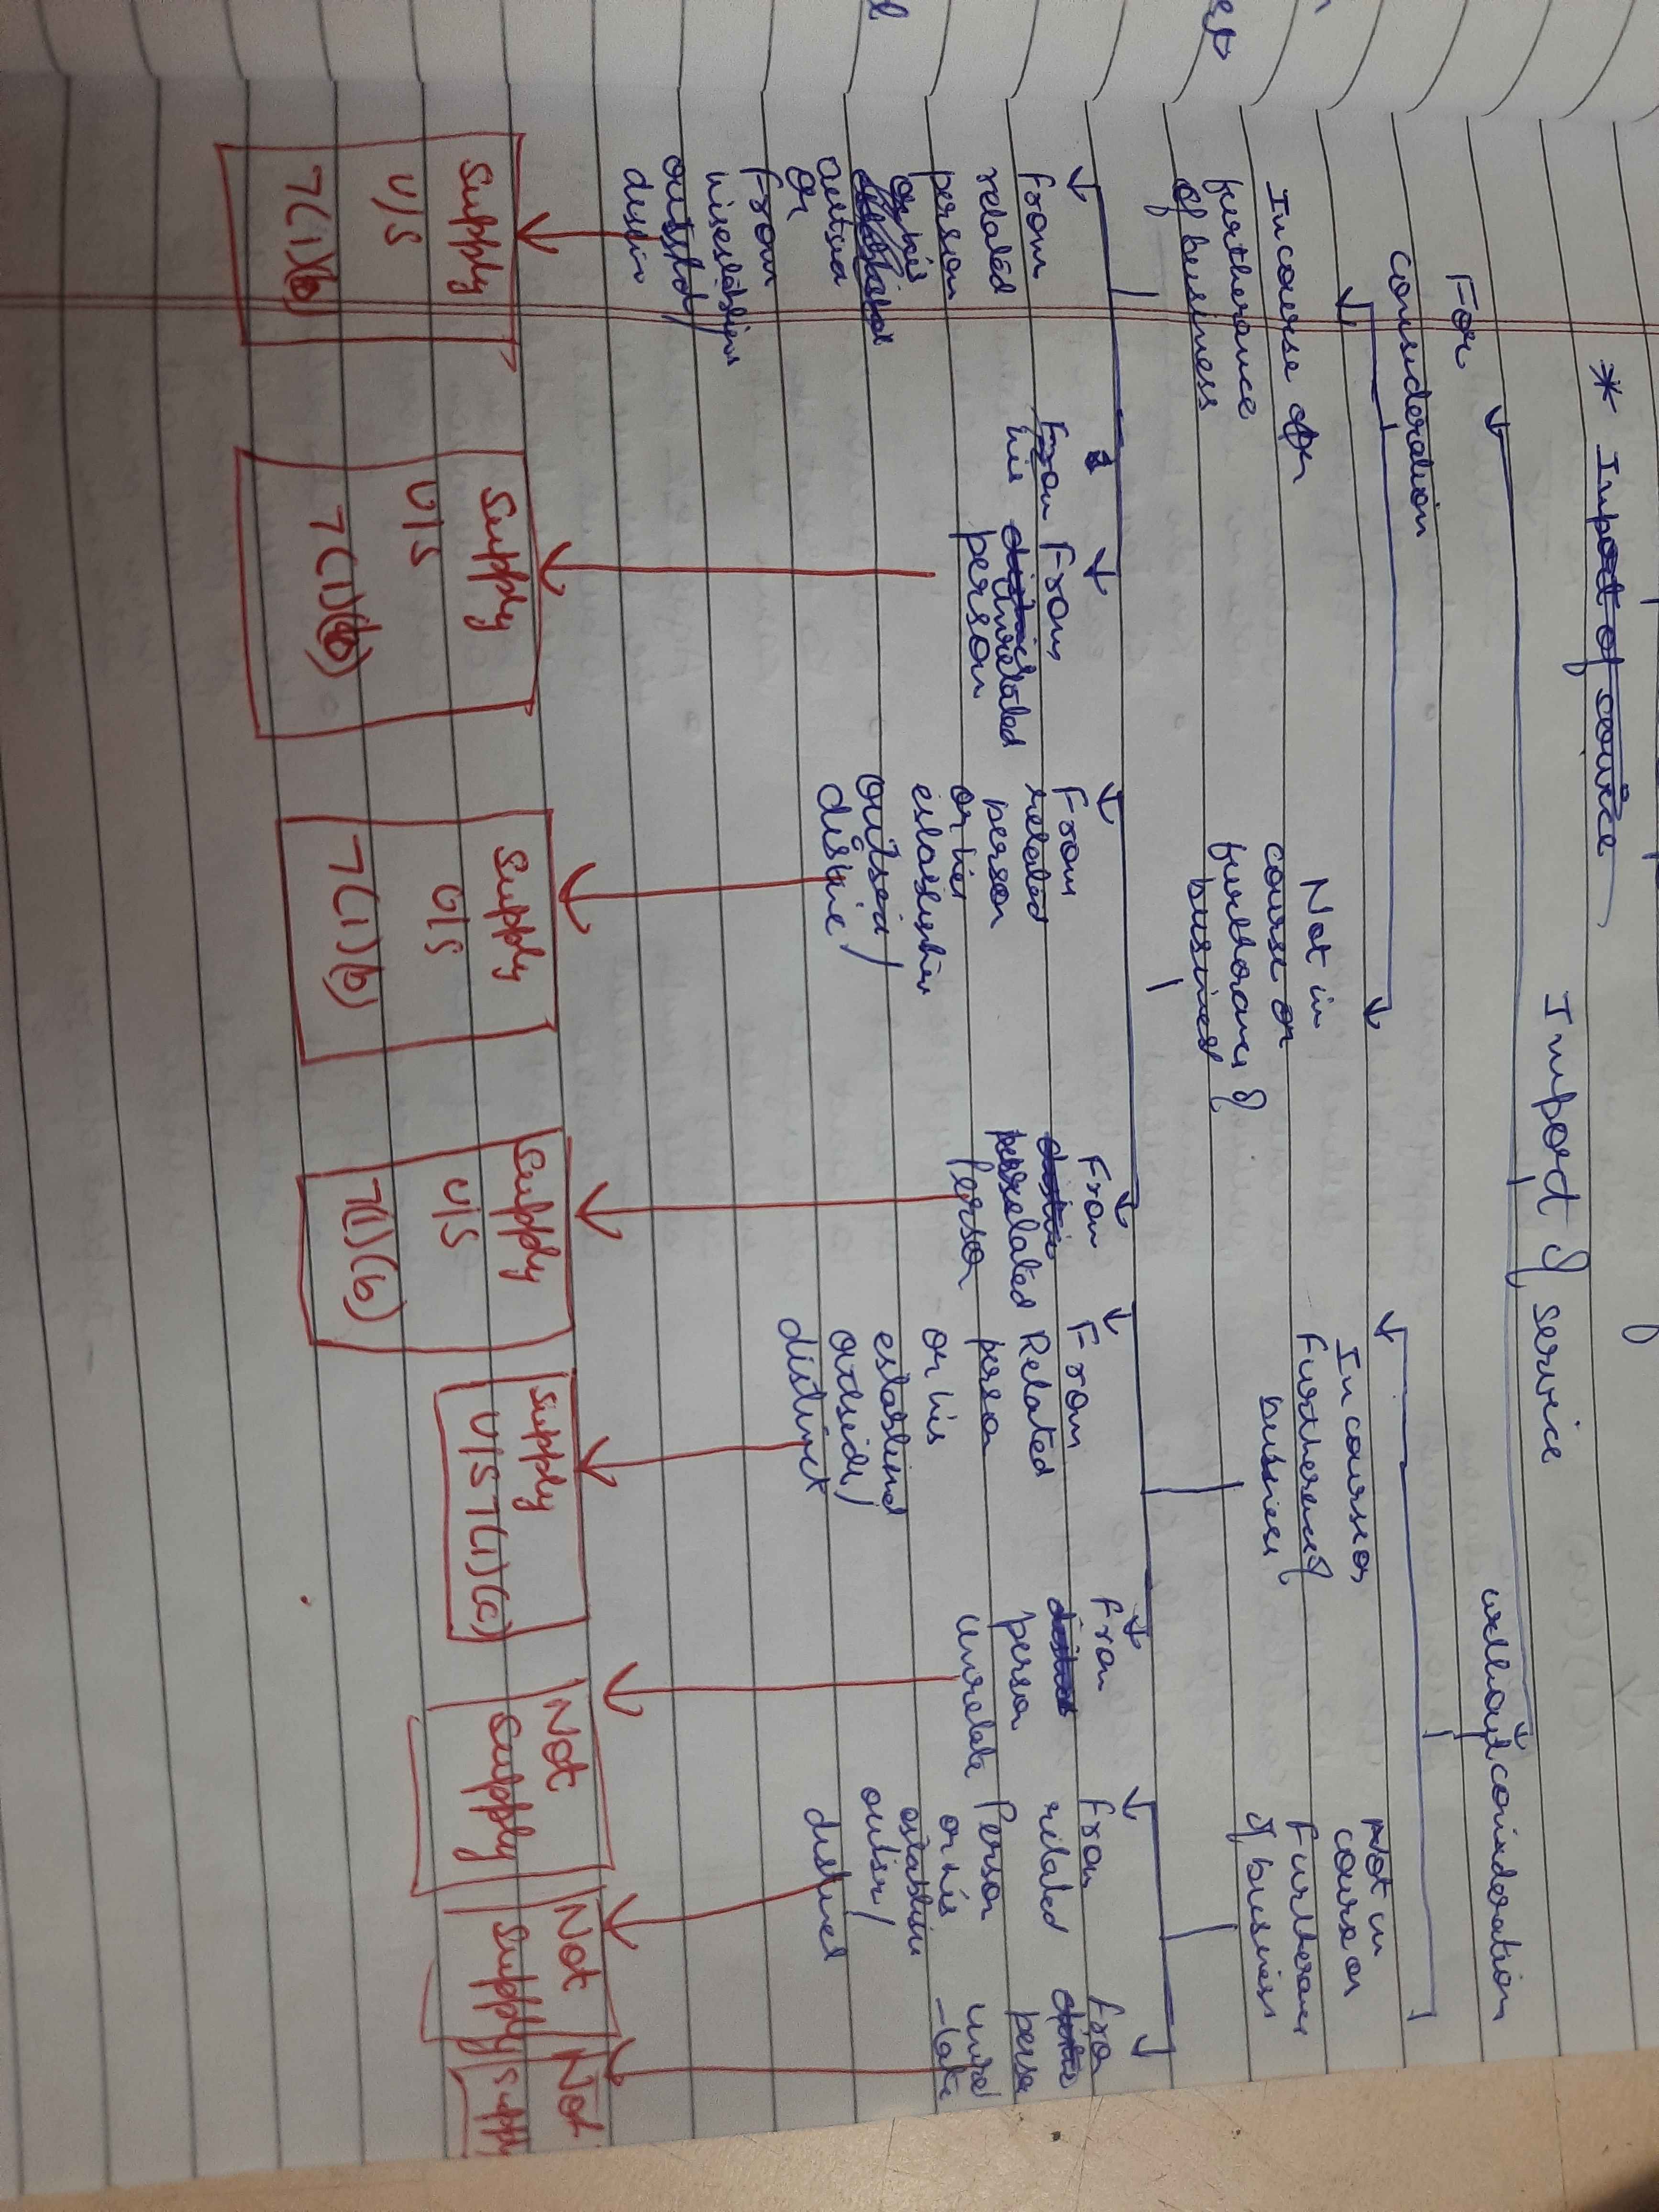 * Import of service
Import of service
For
consideration
without consideration
In course or
furtherance
of business
Not in
course or
furtherance of
business
In course or
Furtherence of
busines
Not in
course or
Furtheranc
of busines
From
related
person
or his
outside
or
From
his
outside/
distin
From
his
From
unrelated
person
From
related
person
or his
establishm
outside/
distinc
From
unrelated
Person
From
Related
person
or his
establishd
outside/
distinct
From
person
unrelate
From
related
Person
or his
establism
outise/
distinct
From
perso
unre
-late
Supply
U/S
7(1)(b)
Supply
U/S
7(1)(b)
Supply
U/S
7(1)(b)
Supply
U/S
7(1)(b)
Supply
U/S 7(1)(c)
Not
Supply
Not
Supply
Not
Suppl